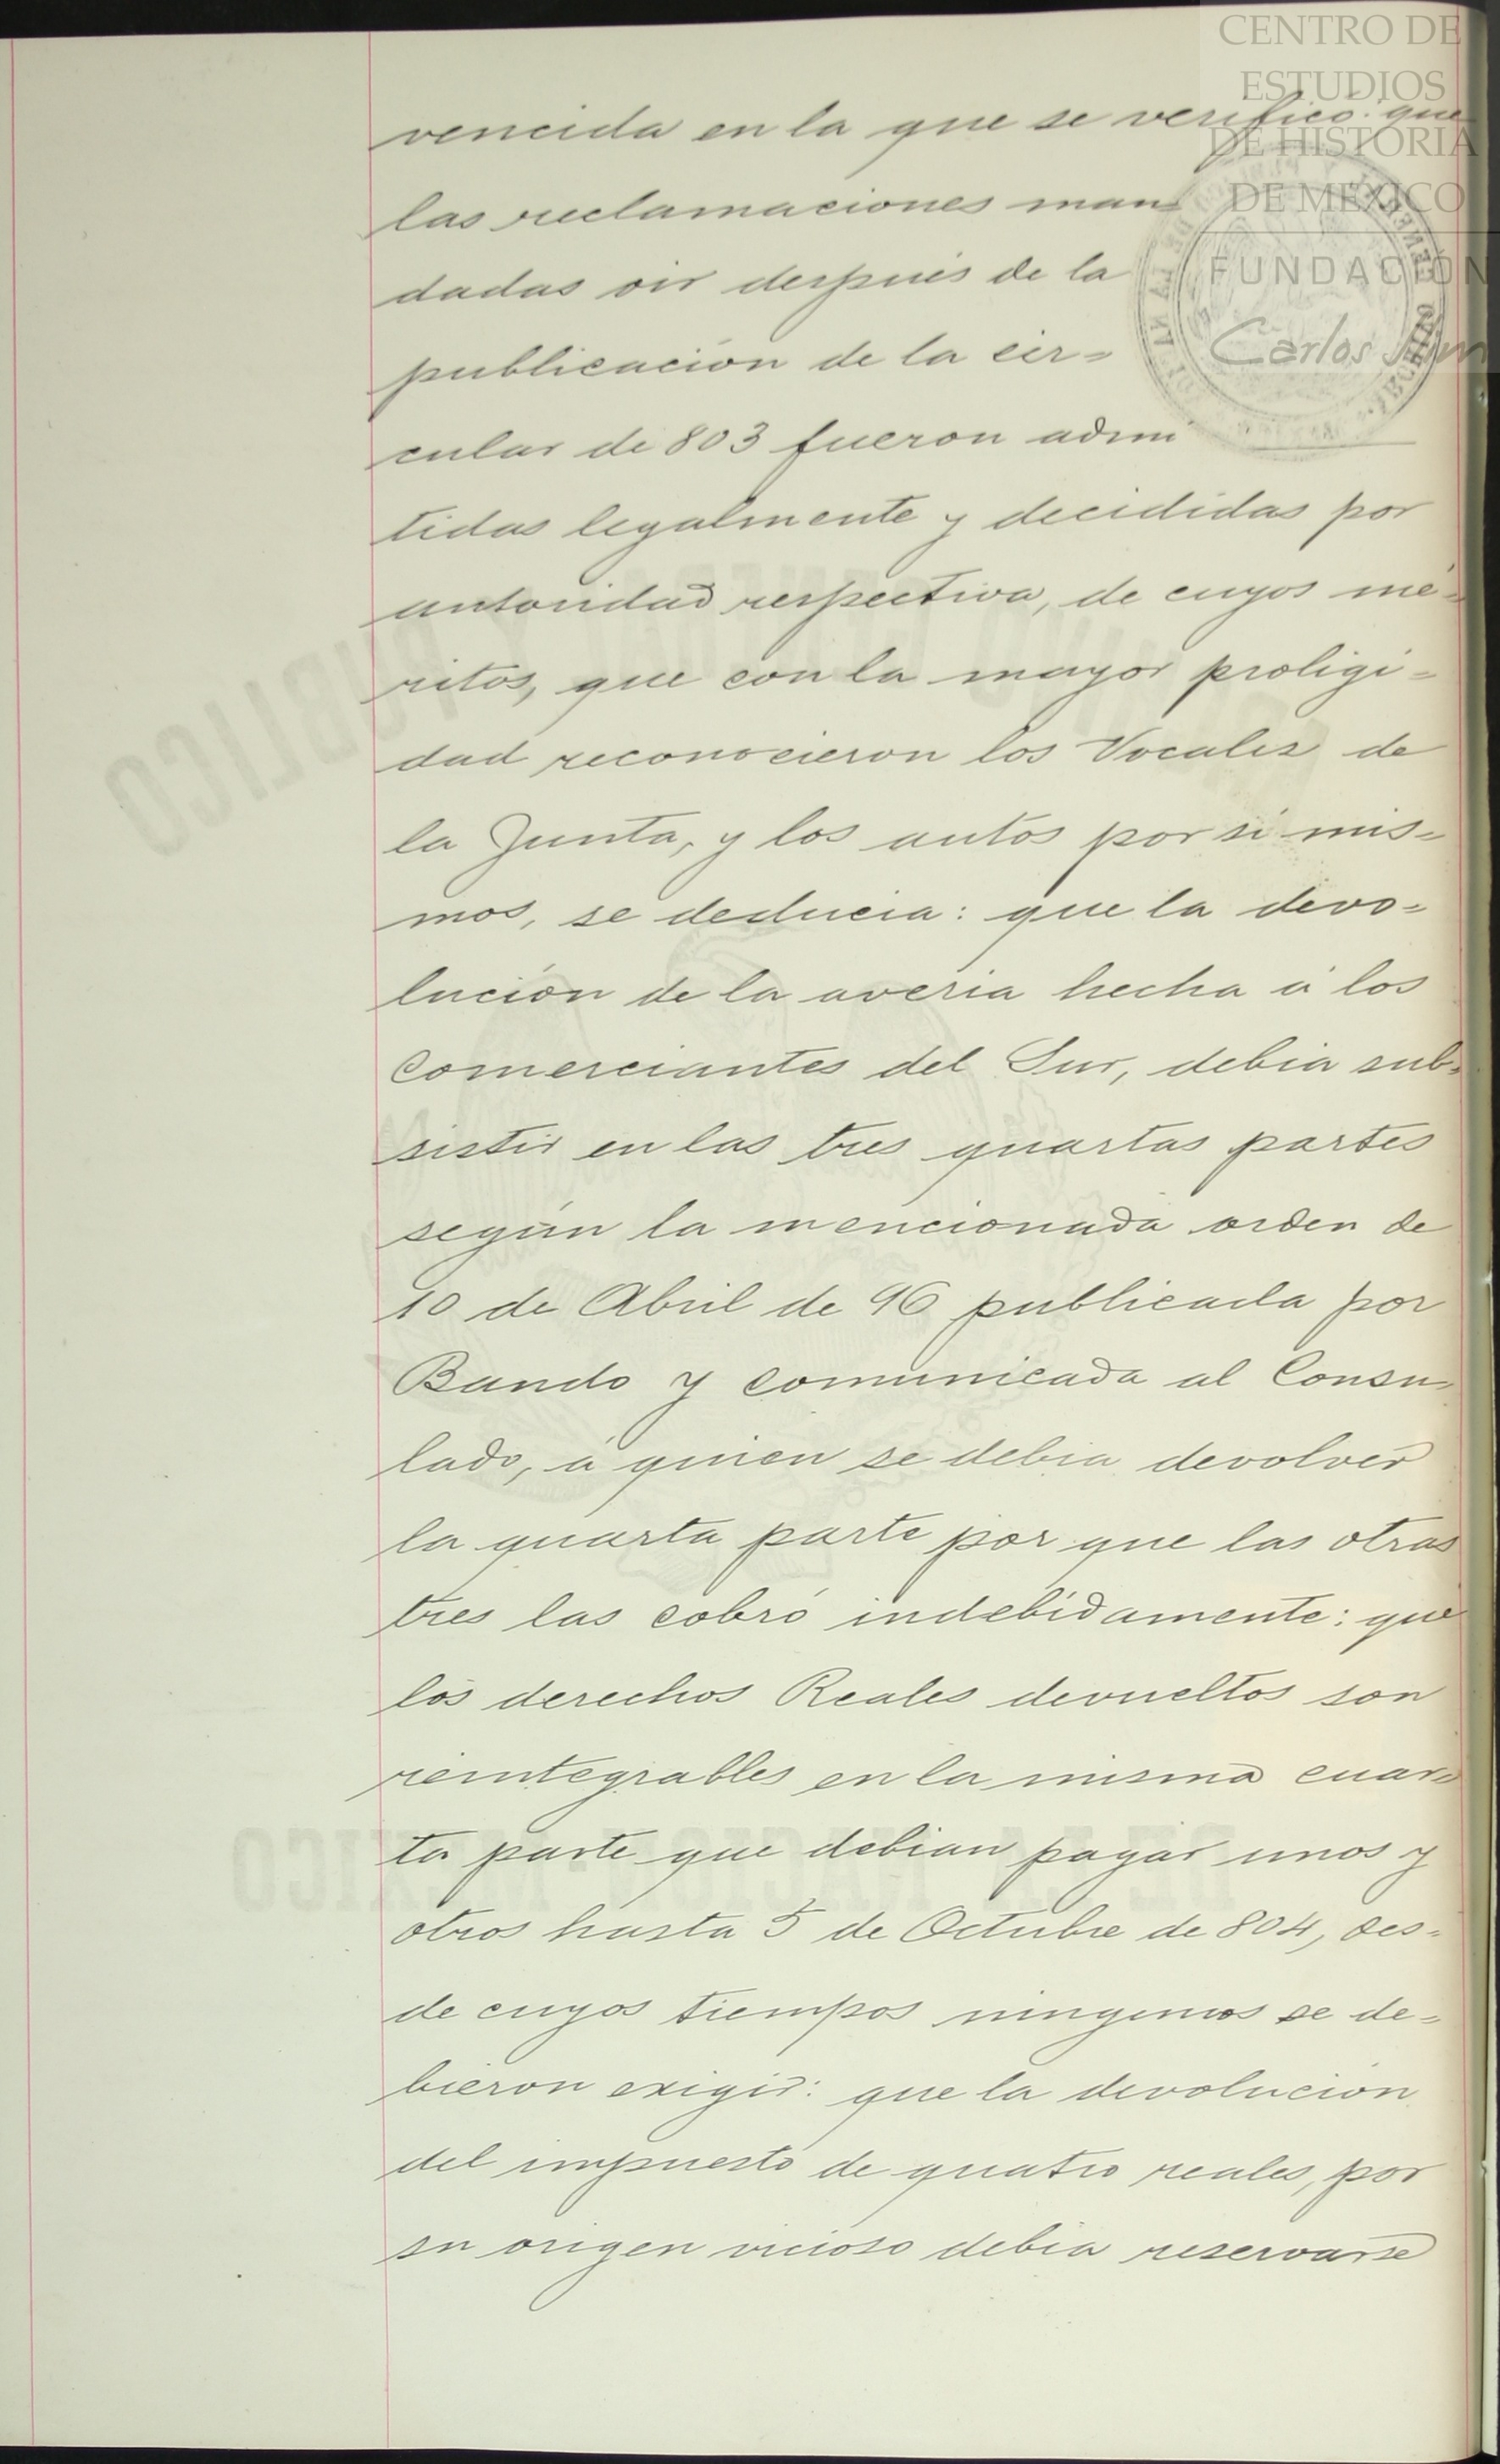 CENTRO DE
ESTUDIOS
DE HISTORIA
DE MEXICO
FUNDACIÓN
Carlos Slim
vencida en la que se verificó: que
las reclamaciones man
dadas oir después de la
publicación de la cir=
cular de 803 fueron admi
tidas legalmente y decididas por
autoridad respectiva, de cuyos mé=
ritos, que con la mayor proligi=
dad reconocieron los Vocales de
la Junta, y los autos por si mis=
mos, se deducia: que la devo=
lución de la averia hecha á los
Comerciantes del Sur, debia sub=
sistir en las tres quartas partes
según la mencionada orden de
10 de Abril de 96 publicada por
Bando y comunicada al Consu=
lado, á quien se debia devolver
la quarta parte por que las otras
tres las cobró indebidamente: que
los derechos Reales devueltos son
reintegrables en la misma cuar=
ta parte que debian pagar unos y
otros hasta 5 de Octubre de 804, des=
de cuyos tiempos ningunos se de=
bieron exigir: que la devolución
del impuesto de quatro reales, por
su origen vicioso debia reservarse
PUBLICO
DE LA NACION. MEXICO